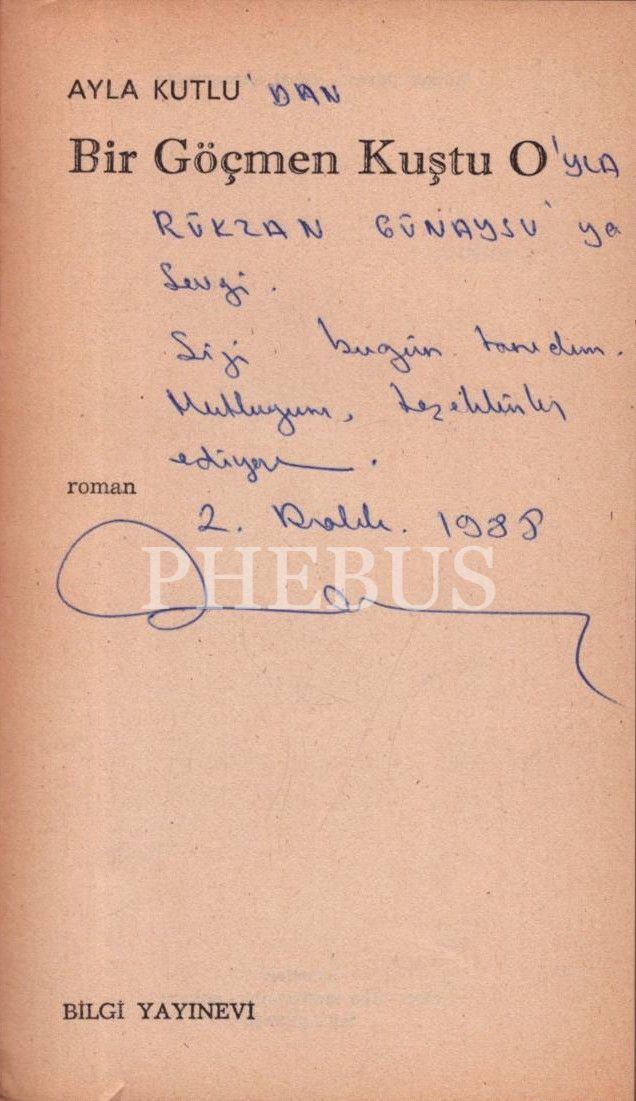 AYLA KUTLU'DAN
Bir Göçmen Kuştu O'YLA
RÜKZAN GÜNAYSU'ya
Sevgi.
Sizi bugün tanıdım.
Mutluyum, teşekkürler
ediyorum.
roman
2. Aralık. 1988
PHEBUS
BİLGİ YAYINEVİ